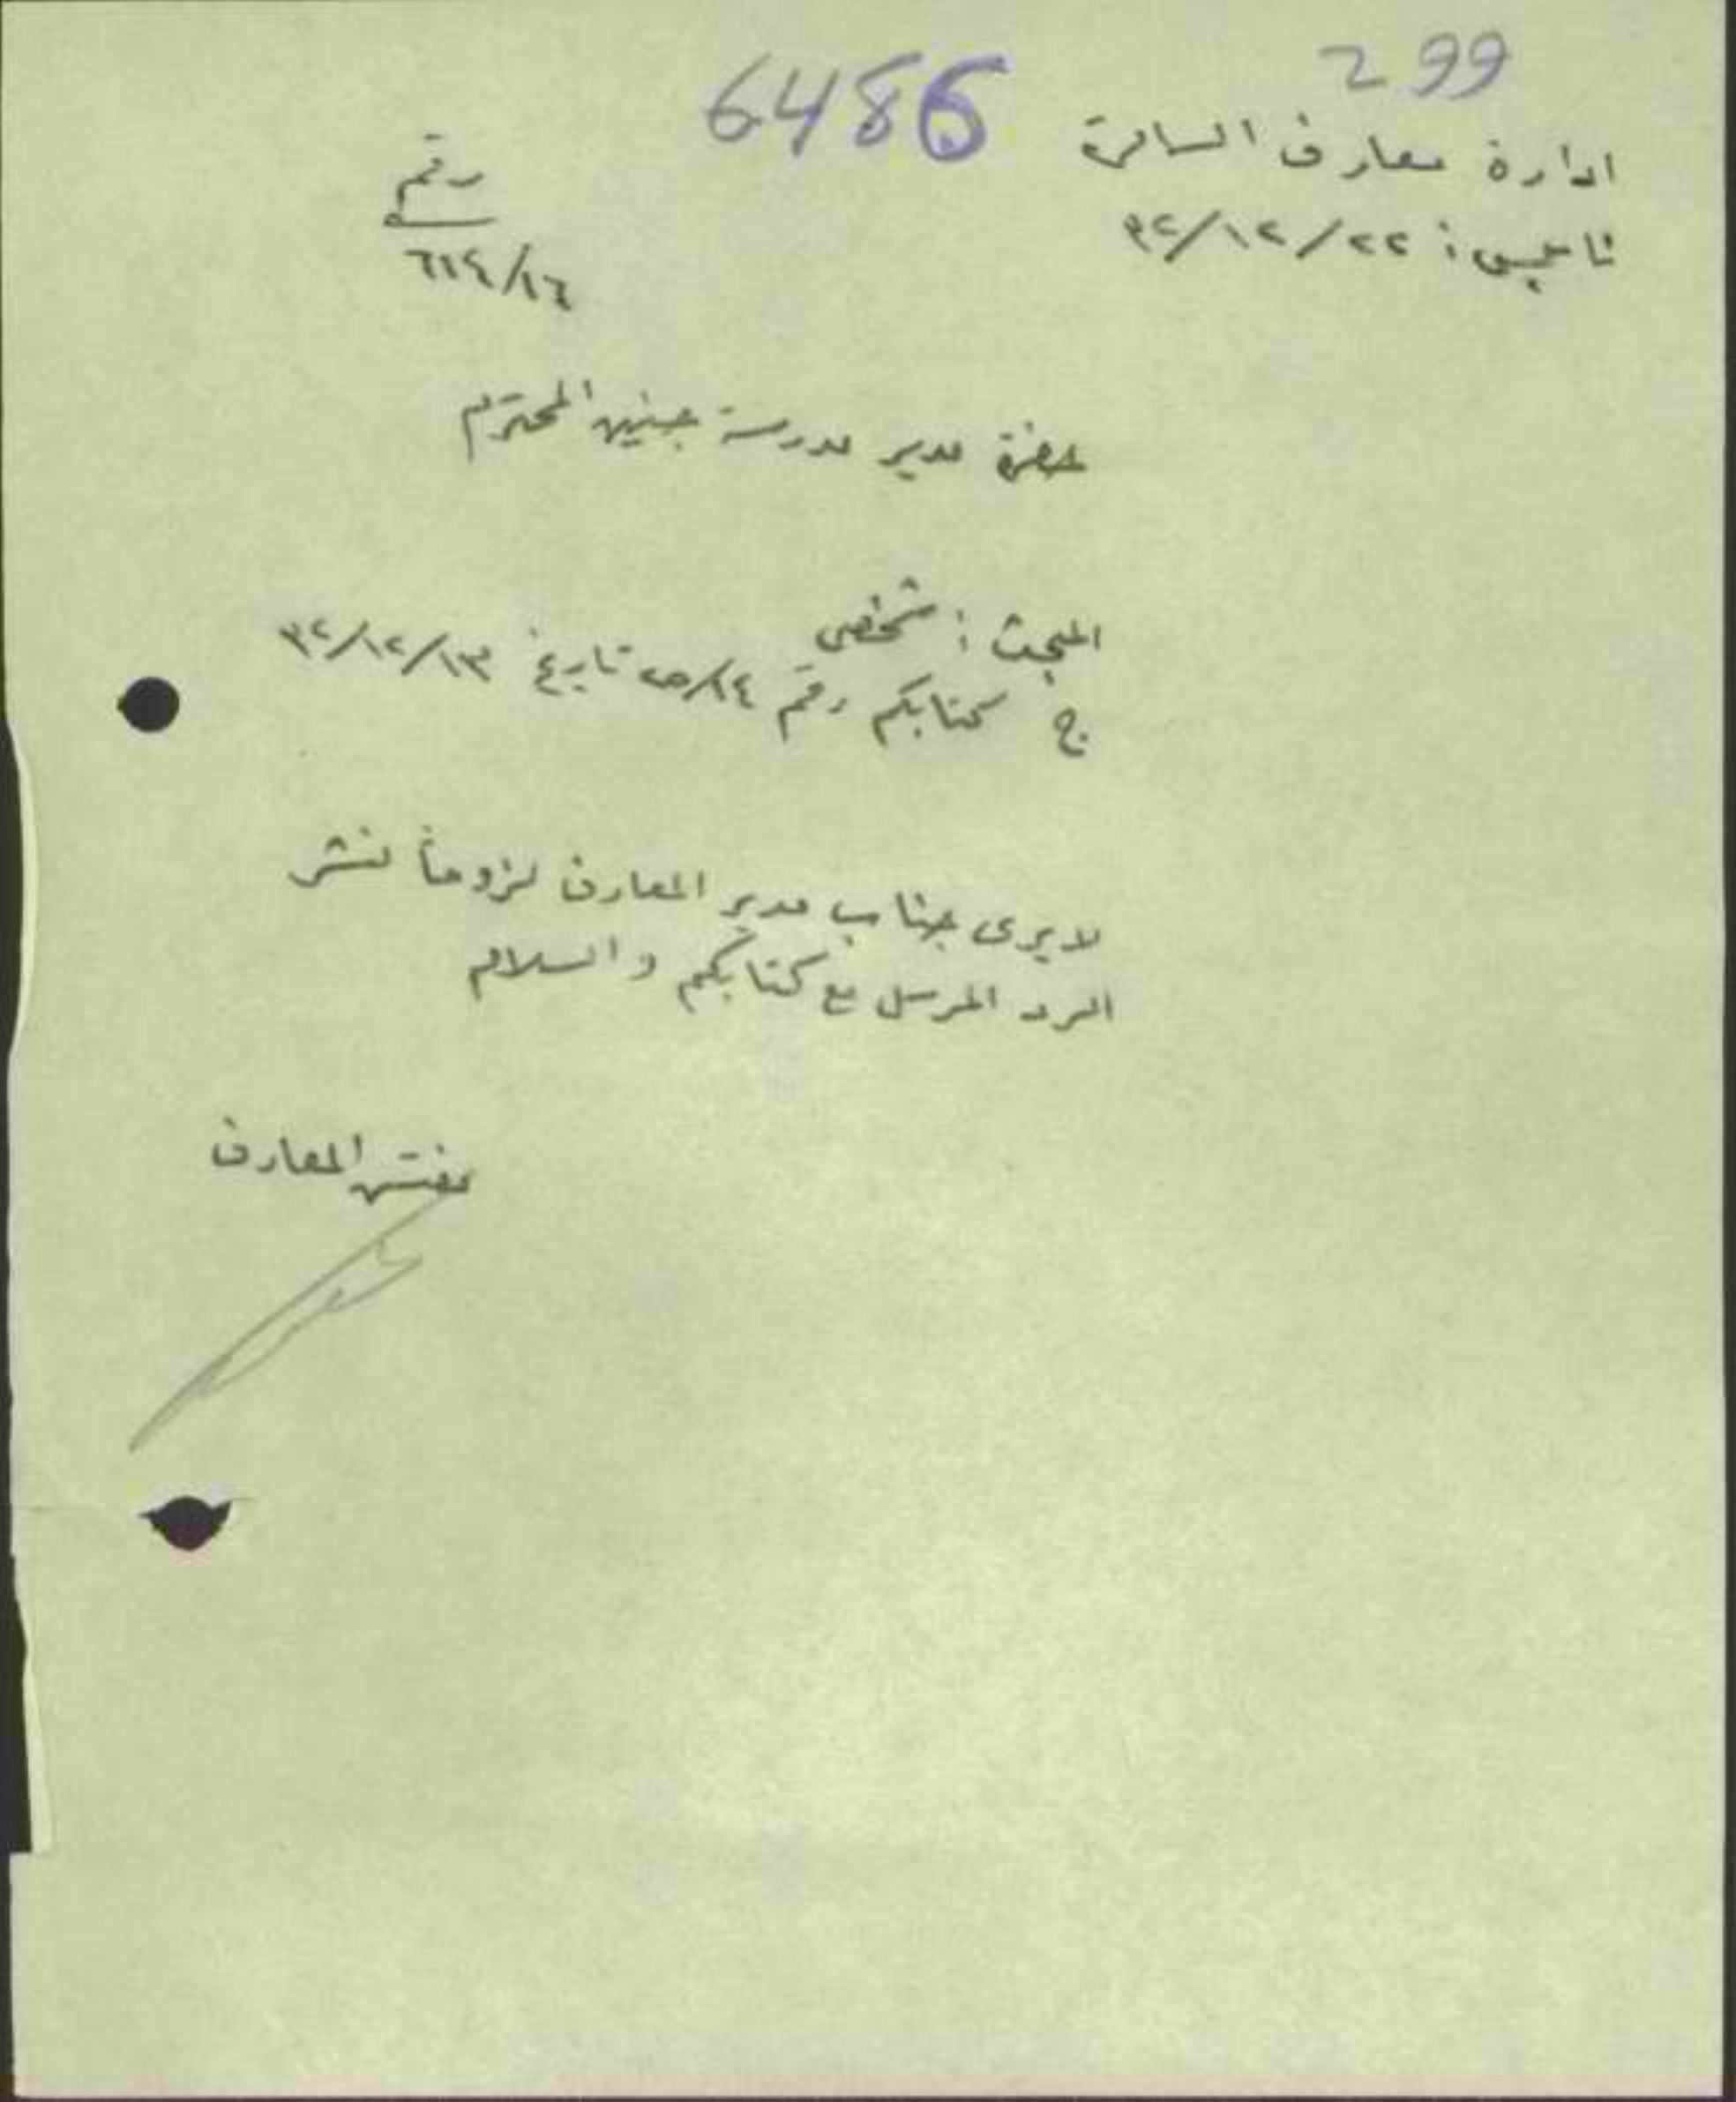 299
6486
ادارة معارف السامرة
نابلس : ٢٢/١٢/٣٢
رقم
٦١٤/١٦
حضرة مدير مدرسة جنين المحترم
المبحث : شخصي
ج كتابكم رقم تاريخ ٣٢/١٢/١٣
لا يرى جناب مدير المعارف لزوماً لنشر
الرد المرسل مع كتابكم والسلام
مفتش المعارف